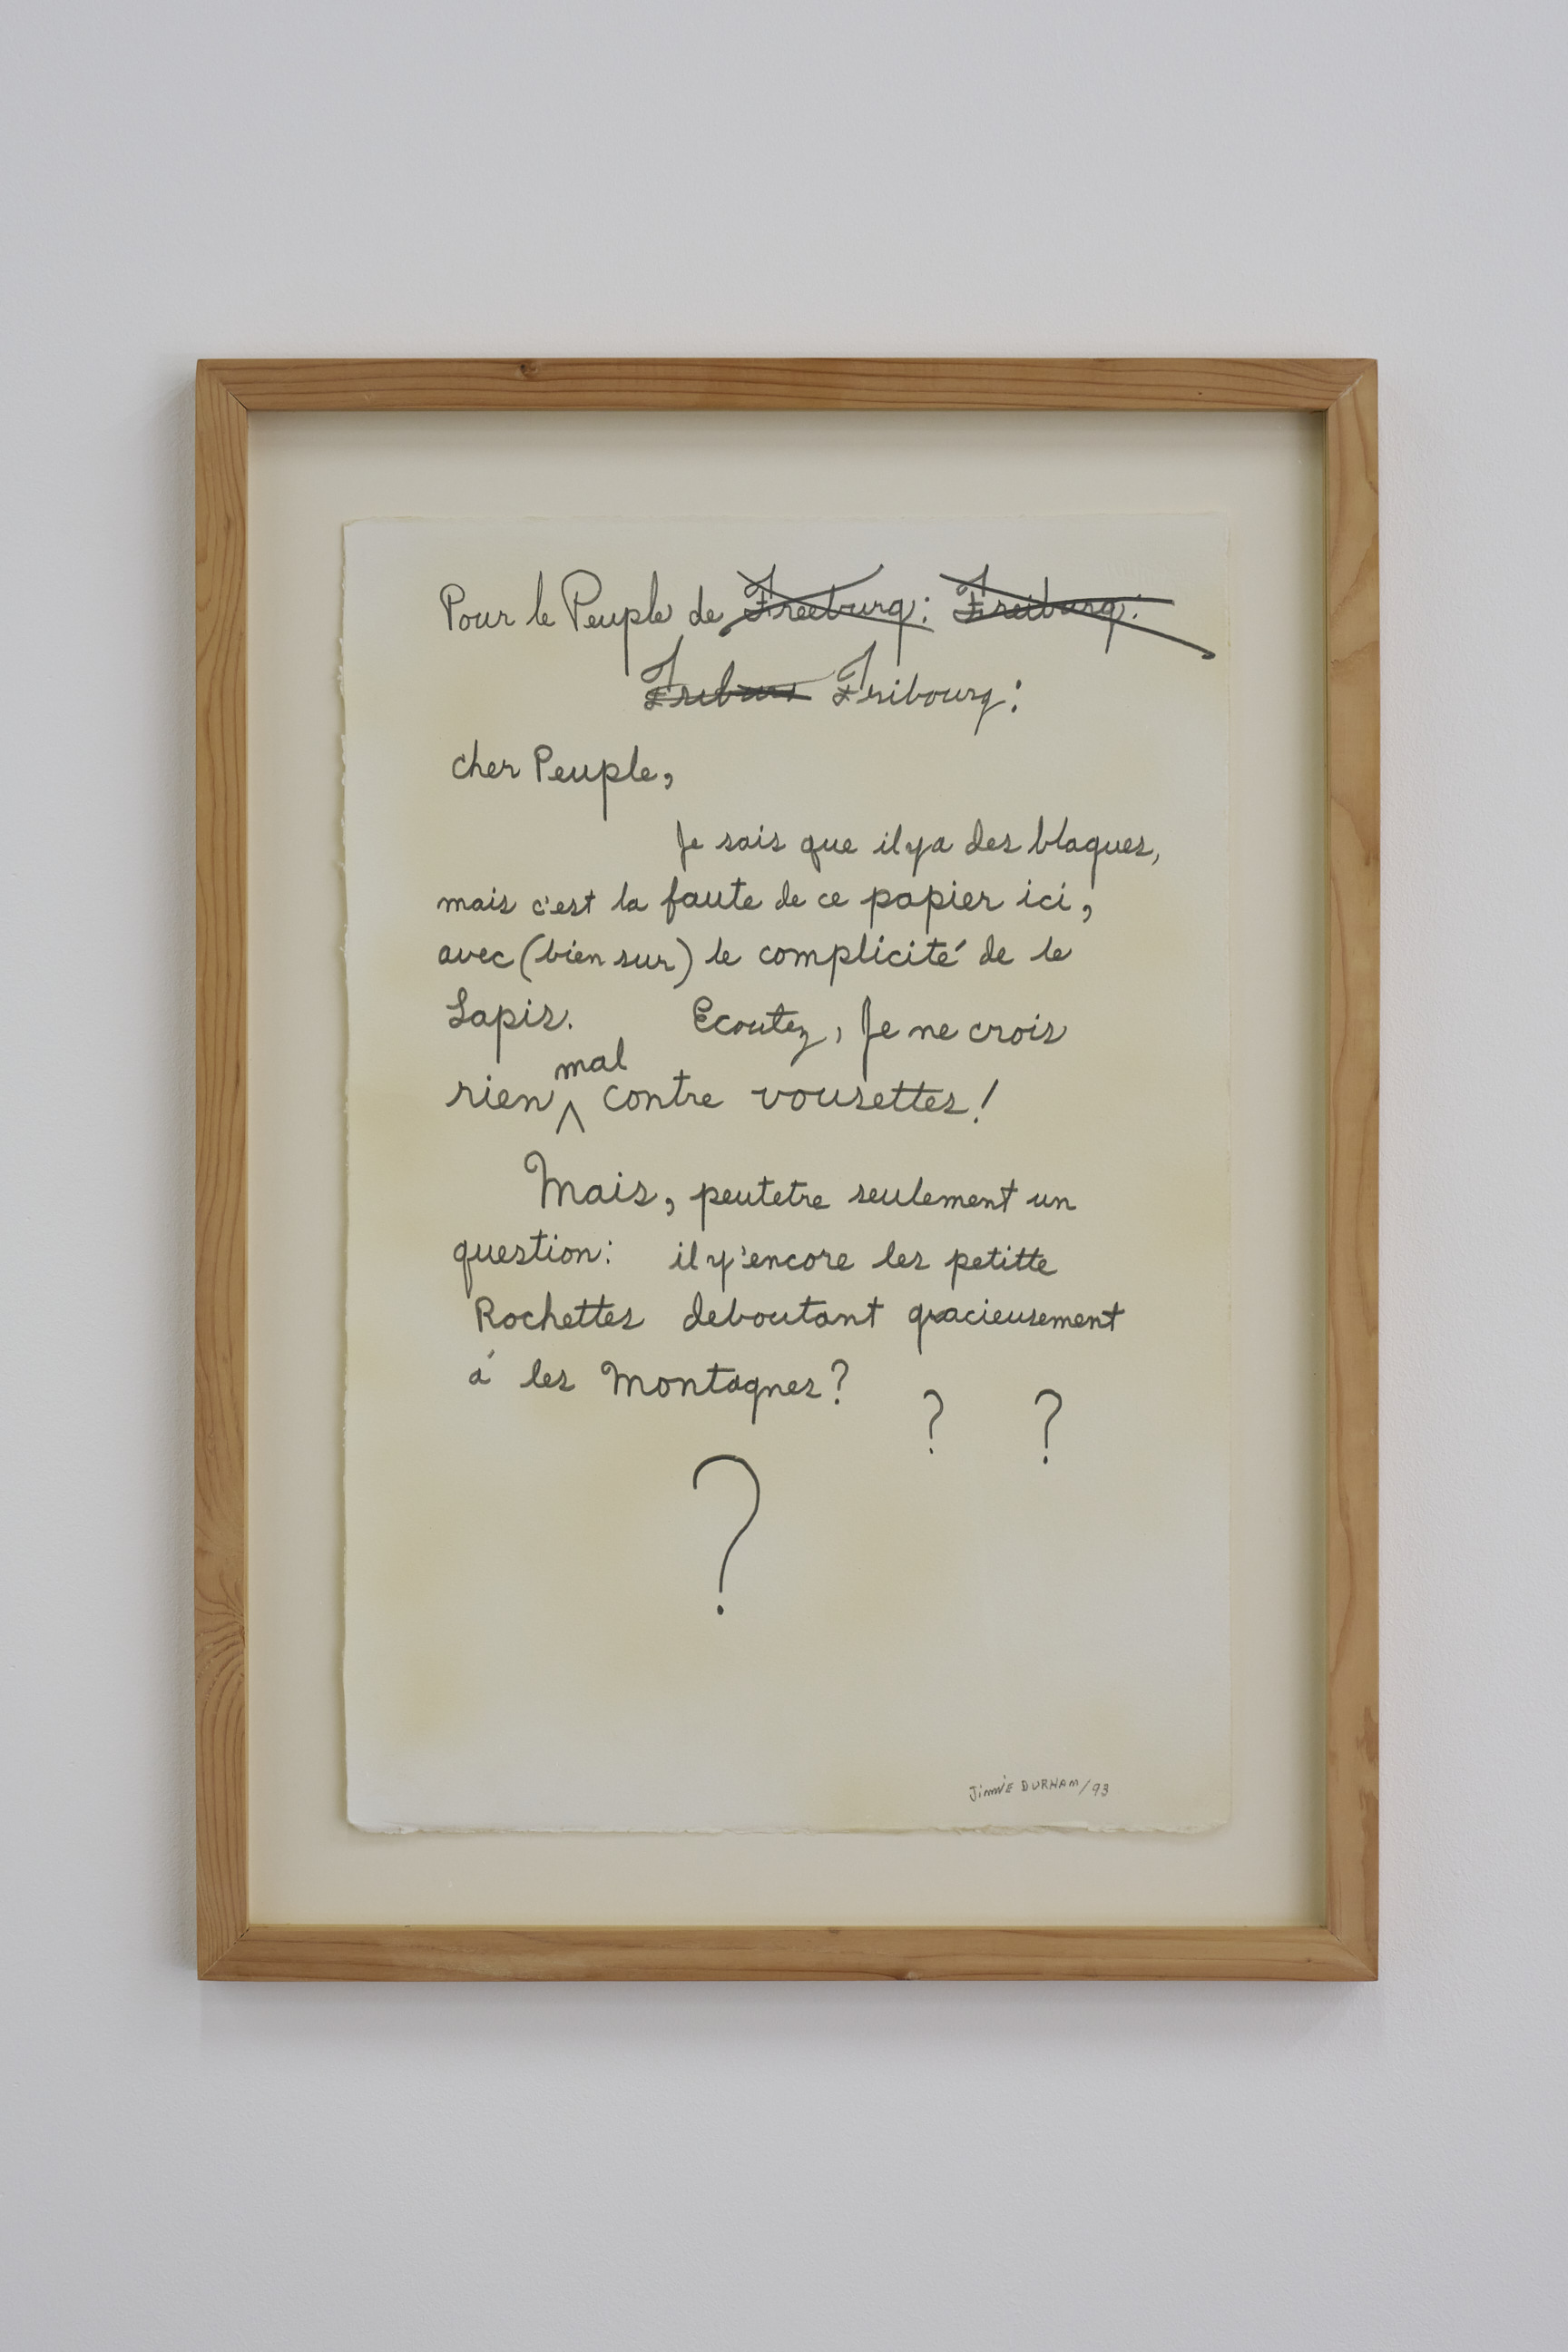 Pour le Peuple de Freeburg: Freiburg:
Friburs Fribourg:
cher Peuple,
Je sais que il y a des blagues,
mais c'est la faute de ce papier ici,
avec (bien sur) le complicité de le
Lapis. Ecoutez, Je ne crois
mal
rien ^ contre vousettes!
Mais, peutetre seulement un
question: il y'encore les petitte
Rochettes deboutant gracieusement
á les Montagnes?
? ?
?
JimmiE DURHAM/93